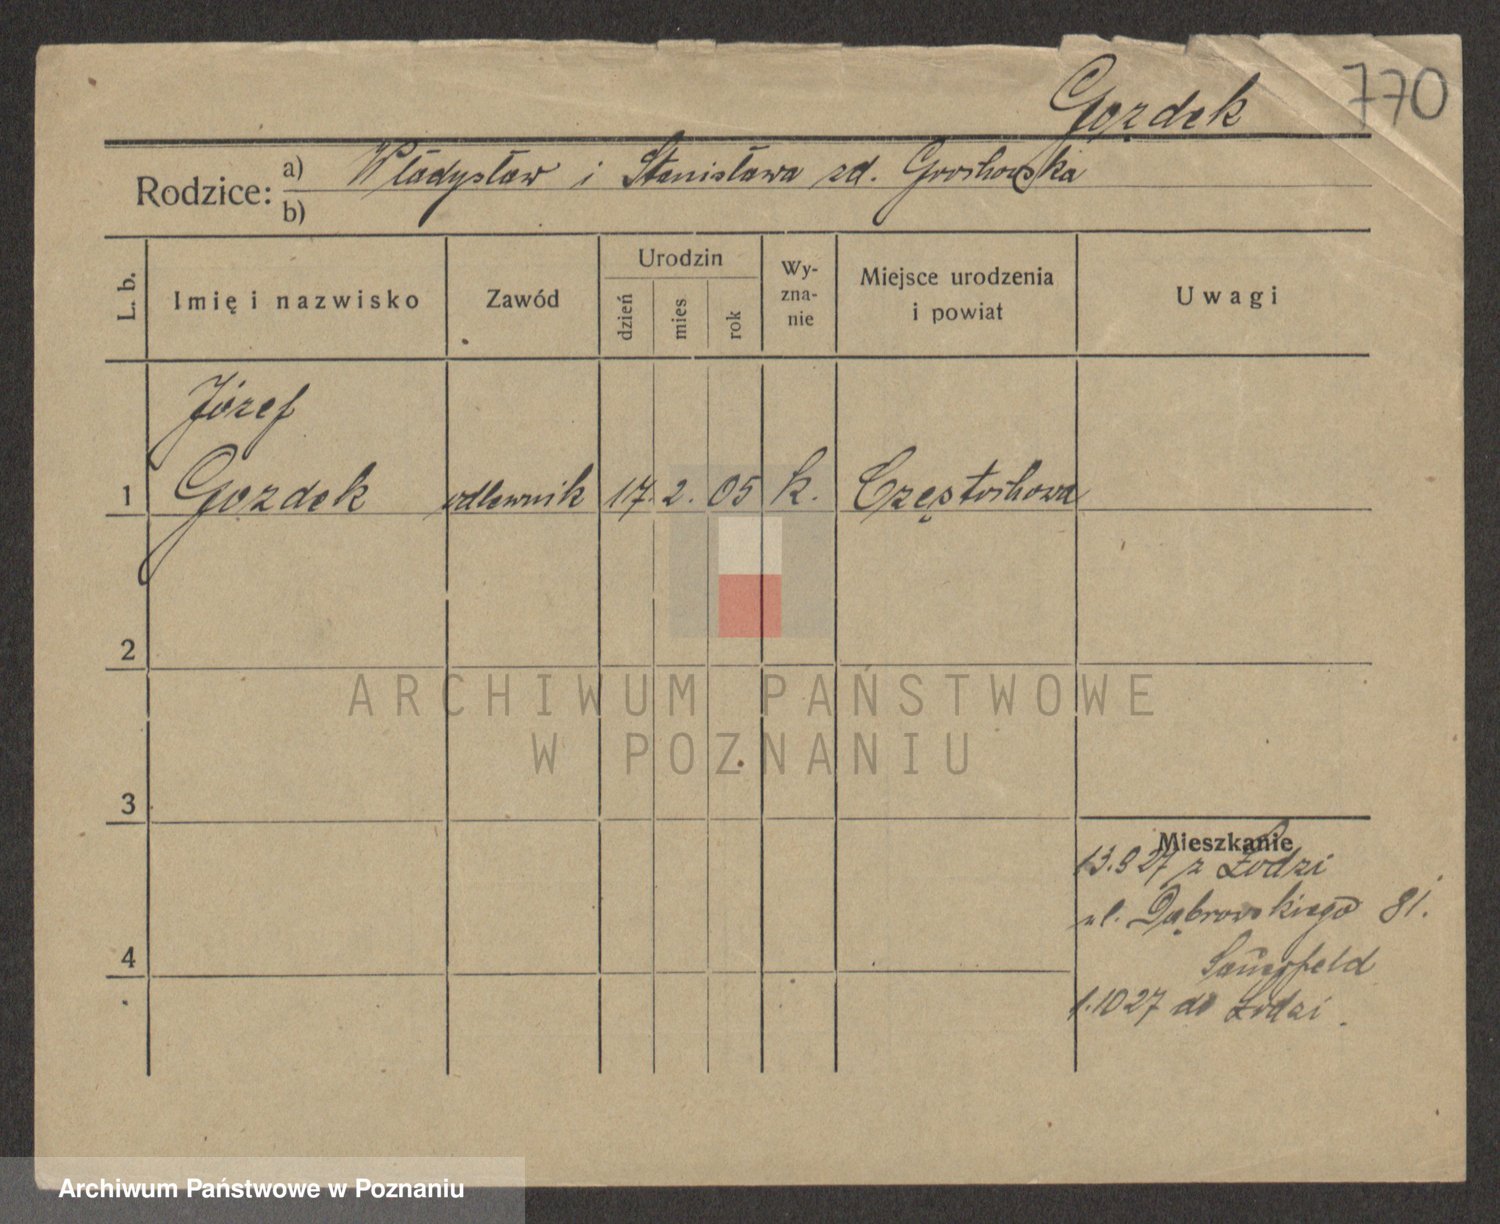 770
Gozdek
Rodzice: a) Władysław i Stanisława zd. Grochowska
b)
L. b.
Imię i nazwisko
Zawód
Urodzin
dzień
mies
rok
Wy-
zna-
nie
Miejsce urodzenia
i powiat
Uwagi
Józef
1 Gozdek odlewnik 17. 2. 05 k. Częstochowa
2
3
4
Mieszkanie
13.9 27 z Łodzi
ul. Dąbrowskiego 81.
Sauerfeld
1.10 27 do Łodzi.
ARCHIWUM PAŃSTWOWE
W POZNANIU
Archiwum Państwowe w Poznaniu